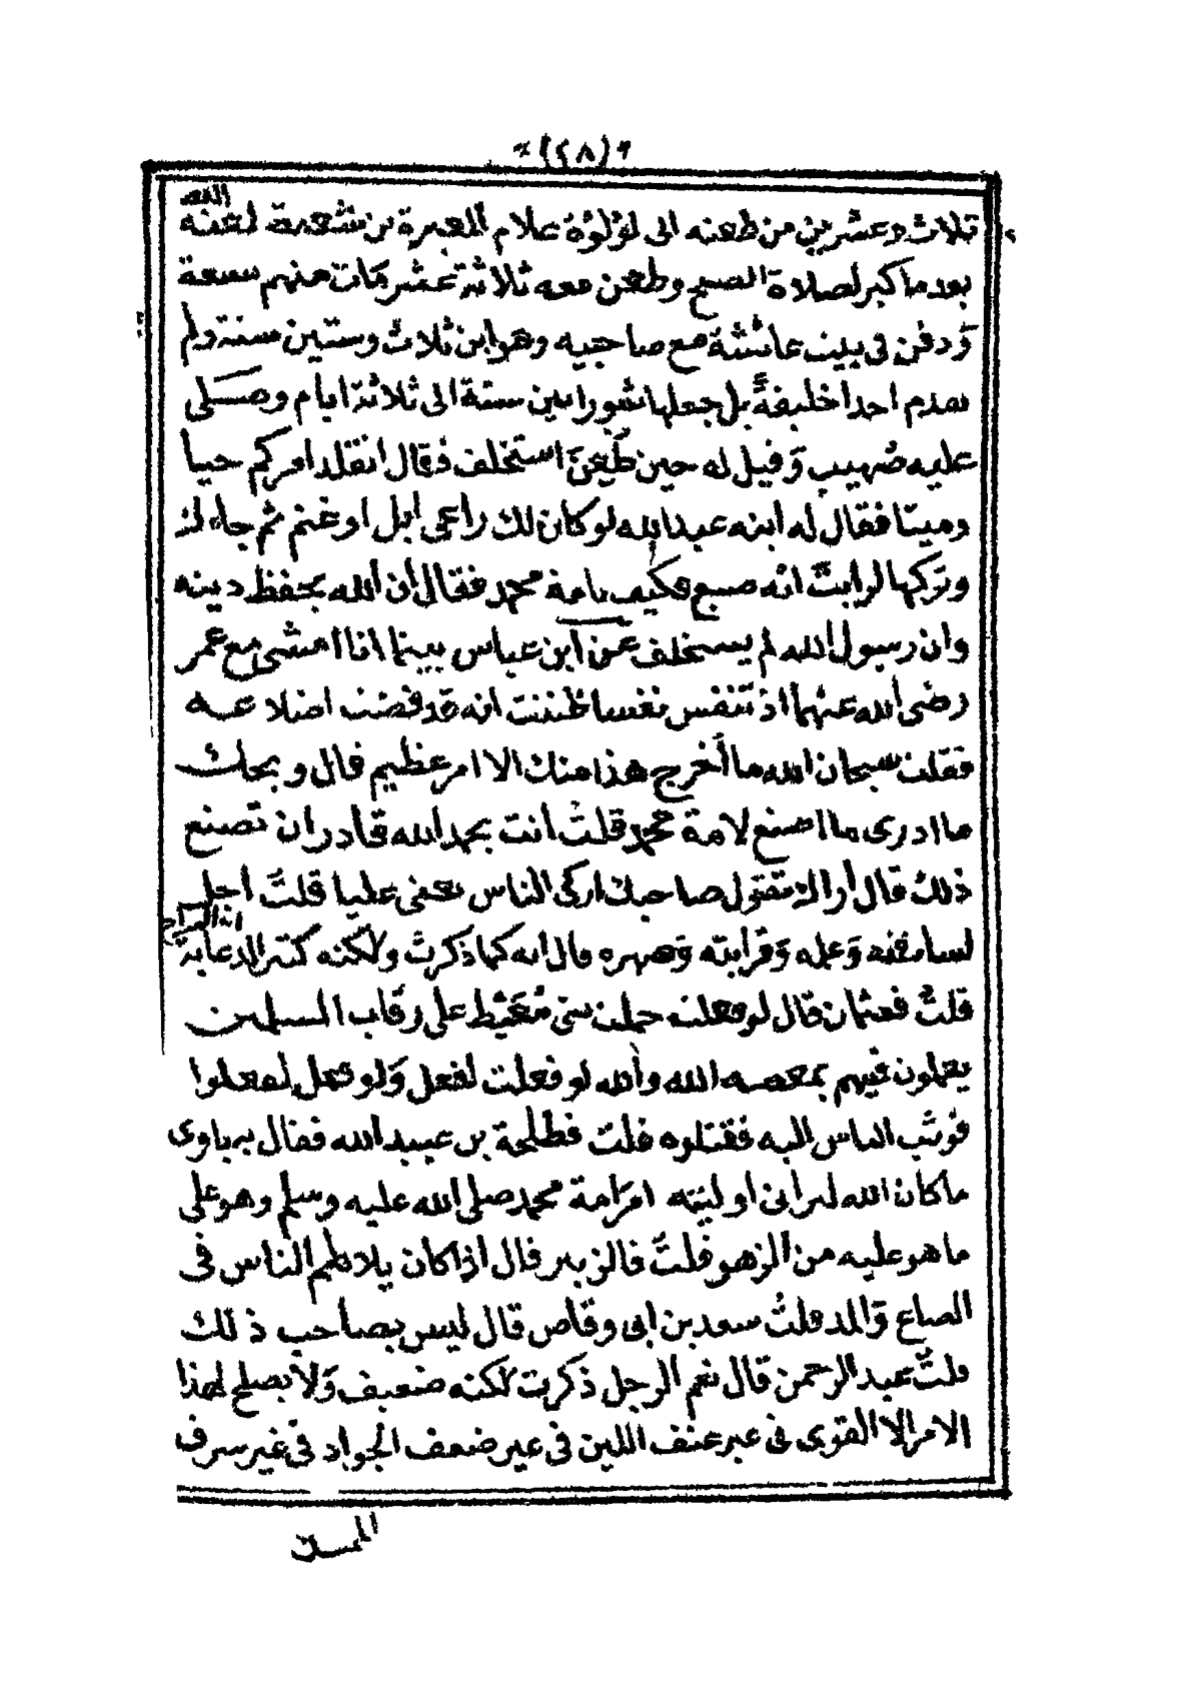 (٢٨)
ثلاث وعشرين من طعنه ابى لؤلؤة غلام المغيرة بن شعبة لعنه الله
بعد ما كبر لصلاة الصبح وطعن معه ثلاثة عشر مات منهم سبعة
وَدفن فى بيت عائشة مع صاحبيه وهو ابن ثلاث وستين سنة ولم
يقدم احدا خليفةً بل جعلها شورا بين ستة الى ثلاثة ايام وصَلى
عليه صُهيب وَقيل له حين طُعِنَ استخلف فقال اتقلد امركم حيا
وميتا فقال له ابنه عبد الله لو كان لك راعى ابل او غنم ثم جاءك
وتركها لرايتَ انه ضيع فكيف بامة محمد فقال ان الله يحفظ دينه
وان رسول الله لم يستخلف عن ابن عباس بينما انا امشى مع عمر
رضى الله عنهما اذ تنفس نفسا ظننت انه قد فضت اضلاعه
فقلت سبحان الله ما أخرج هذا منك الا امر عظيم قال ويحك
ما ادرى ما اصنع لامة محمد قلت انت بحمد الله قادر ان تصنع
ذلك قال اراك تقول صاحبك اركى الناس يعنى عليا قلتَ اجل
لسابقته وَعلمه وَقرابته وَصهره قال انه كما ذكرت ولكنه كثير الدعابة
قلتُ فعثمان قال لو فعلت حملت بنى مُعَيْط على رقاب المسلمين
يعملون فيهم بمعصية الله والله لو فعلت لفعل وَلو فعل لفعلوا
فوثب الناس اليه فقتلوه قلت فطلحة بن عبيد الله فقال
ما كان الله ليرانى اوليته امرَ امة محمد صلى الله عليه وسلم وهو على
ما هو عليه من الزهو قلتَ فالزبير قال اذا كان يلاطم الناس فى
الصاع وَالمد قلتُ سعد بن ابى وقاص قال ليس بصاحب ذلك
قلتَ عبد الرحمن قال نعم الرجل ذكرت لكنه ضعيف وَلا يصلح لهذا
الامر الا القوى فى غير عنف اللين فى غير ضعف الجواد فى غير سرف